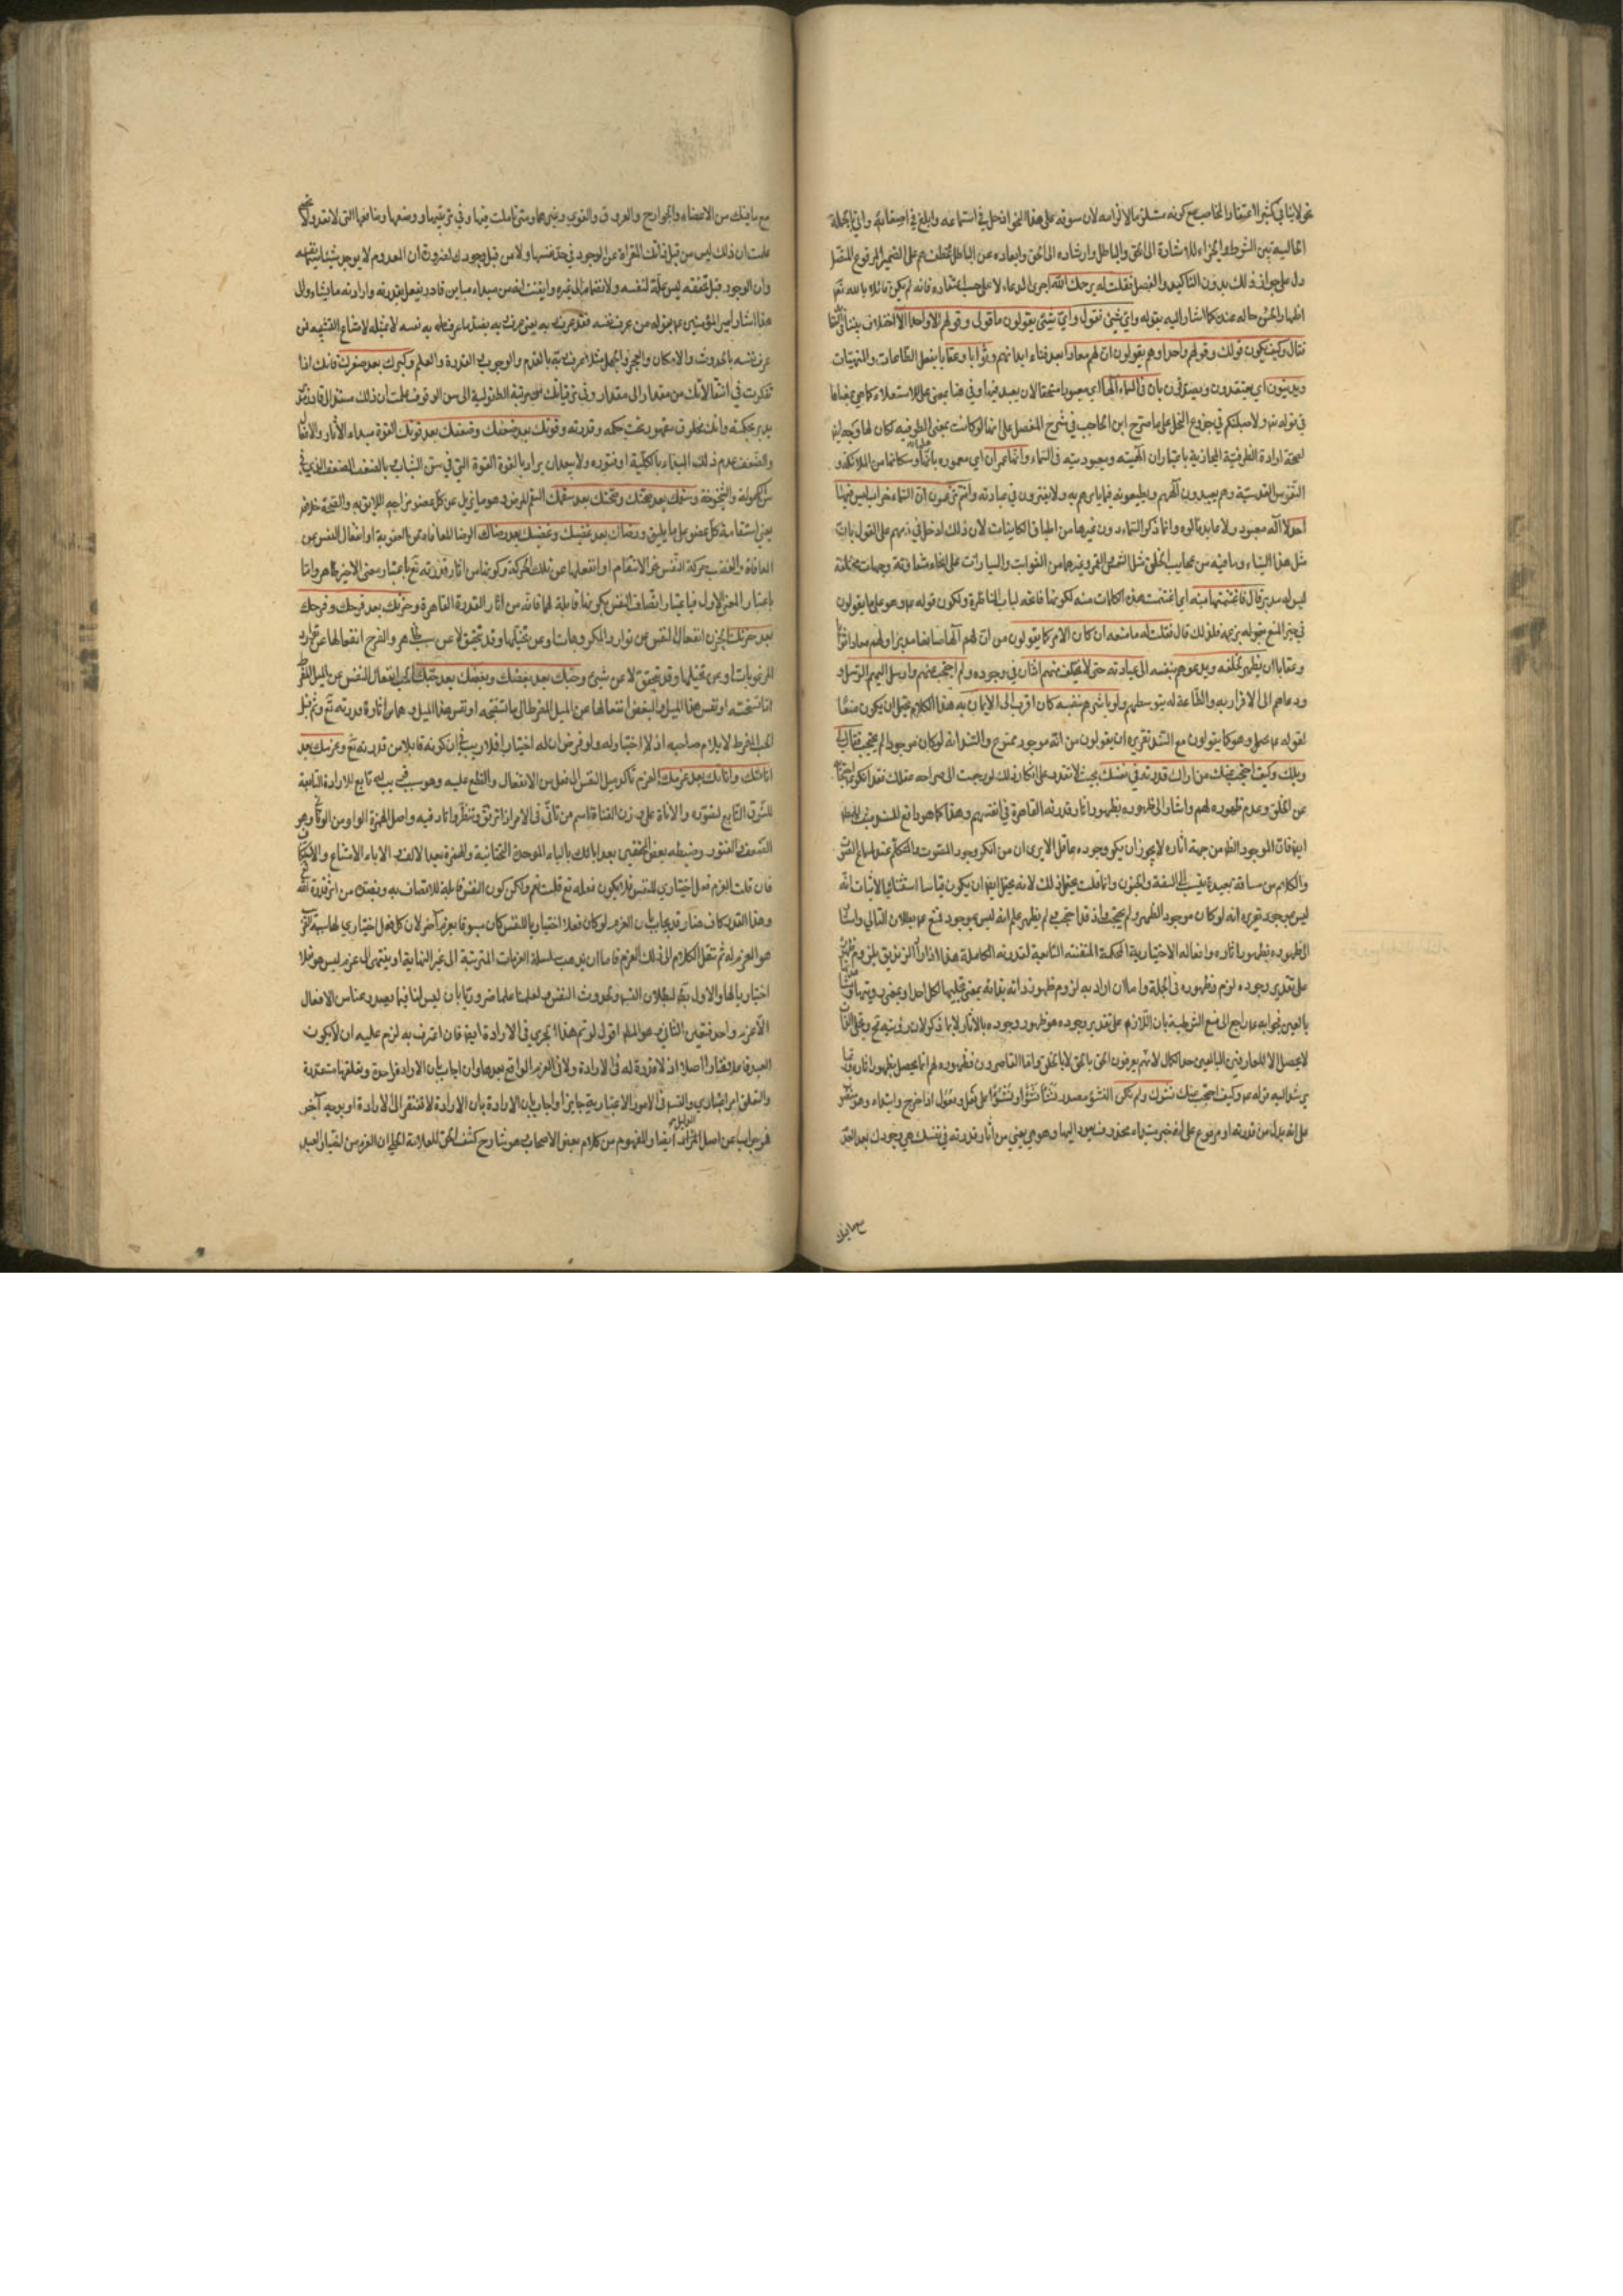 نحو لاينافي كثير الاعتقاد الخاص مع كونه مستلزما لالزامه لان سوقه على هذا النحو ادخل في استماعه وابلغ في اصغائه واتى بالجملة
الحالية بين الشرط والجزاء للاشارة الى الحق والباطل وارشاده الى الحق وابعاده عن الباطل فعطبتم على الضمير المرفوع المتصل
دل على جواز ذلك بدون التاكيد والفصل فقلت له يرحمك الله اجرى الدعاء لا على حسب اعتقاده فانه لم يكن قائلا بالله
اظهارا لحسن حاله عنده كما اشار اليه بقوله واي شئ نقول واي شئ يقولون ما قولي وقولهم الا واحدا لا اختلاف بيننا
فقال وكيف يكون قولك وقولهم واحدا وهم يقولون ان لهم معادا بعد فناء ابدانهم وثوابا وعقابا بفعل الطاعات والمنهيات
ويدينون اي يعتقدون ويصدقون بان في السماء الها اي معبودا مستحقا لان يعبد فيها وفي هنا بمعنى على للاستعلاء كما هي بمعناها
في قوله تعالى ولاصلبنكم في جذوع النخل على ما صرح ابن الحاجب في شرح المفصل على انها لو كانت بمعنى الظرفية كان لها وجه
لصحة ارادة الظرفية المجازية باعتبار ان الهيته ومعبوديته في السماء وانها عمران اي معمورة باهلها وسكانها من الملائكة و
النفوس القدسية وهم يعبدون الههم ويطيعونه فيما يامرهم به ولا يفترون في عبادته وانتم تزعمون ان السماء خراب ليس فيها
احد لا اله معبود ولا عابد مالوه وانما ذكر السماء دون غيرها من اطباق الكاينات لان ذلك ادخل في ذمهم على القول بان
مثل هذا البناء وما فيه من عجايب الخلق مثل الشمس والقمر وغيرهما من الثوابت والسيارات على انحاء متفاوتة وجهات مختلفة
ليس له مدبر قال فاغتنمتها منه اي اغتنمت هذه الكلمات منه لكونها فاتحة لباب المناظرة ولكون قوله عم وهو على ما يقولون
في حيز المنع بقوله بزعمه فلذلك قال فقلت له ما منعه ان كان الامر كما يقولون من ان لهم الها صانعا مدبرا ولهم معادا وثوابا
وعقابا ان يظهر لخلقه ويدعوهم بنفسه الى عبادته حتى لا يختلف منهم اثنان في وجوده ولم احتجب عنهم وارسل اليهم الرسل و
ودعاهم الى الاقرار به والطاعة له بتوسطهم ولو باشرهم بنفسه كان اقرب الى الايمان به هذا الكلام يحتمل ان يكون منعا
لقوله عم وهو كما يقولون مع السند تقريره ان يقولون من انه موجود ممنوع والسند انه لو كان موجودا لم يحتجب فقال لي
ويلك وكيف احتجب عنك من اراك قدرته في نفسك بحيث لا تقدر على انكار ذلك لو رجعت الى صراحة عقلك فقد انكر
عن الخلق وعدم ظهوره لهم واشار الى ظهوره بظهور اثار قدرته القاهرة في انفسهم وهذا كما هو دافع للسند
ايضا فان الموجود الظاهر من جهة اثاره لا يجوز ان ينكر وجوده عاقل الا يرى ان من انكر وجود المصوت والمتكلم عند سماع الصوت
والكلام من مسافة بعيدة ينسب الى السفه والجنون وانما قلت يحتمل ذلك لانه يحتمل ايضا ان يكون قياسا استثنائيا لاثبات انه
ليس بموجود تقريره انه لو كان موجودا لظهر ولم يحتجب واذ قد احتجب ولم يظهر علم انه ليس بموجود فمنع عم بطلان التالي واشار
الى ظهوره بظهور اثاره وافعاله الاختيارية المحكمة المتقنة التابعة لقدرته الكاملة هذا اذا اراد الزنديق بلزوم ظهوره
على تقدير وجوده لزوم ظهوره في الجملة واما ان اراد به لزوم ظهور ذاته بذاته بمعنى تجليها لكل احد او بمعنى رؤيتها
بالعين فجوابه عم راجع الى منع الشرطية بان اللازم على تقدير وجوده هو ظهور وجوده بالاثار لا ما ذكر لان رؤيته تع وتجلي
لا يحصل الا للعارفين البالغين حد الكمال لانهم يعرفون الحق بالحق لا بالخلق واما القاصرون فظهوره لهم انما يحصل بظهور اثاره
يرشد اليه قوله عم وكيف احتجب عنك نشوك ولم تكن النشوء مصدر نشأ نشأ ونشوءا على فعل وفعول اذا خرج وابتدا وهو
على انه بدل من قدرته او مرفوع على انه خبر مبتداء محذوف يعود اليها وهو هي يعني من اثار قدرته في نفسك هي وجودك بعد العدم
مع ما فيك
مع ما فيك من الاعضاء والجوارح والعروق والقوى وغيرها ومتى تاملت فيها وفي ترتيبها ووضعها ومنافعها التي لا تعد ولا تحصى
علمت ان ذلك ليس من قبل ذاتك المعراة عن الوجود في حد نفسها ولا من قبل وجودك لضرورة ان المعدوم لا يوجد شيئا
وان الوجود قبل تحققه ليس علة لنفسه ولا لانضمامه الى غيره وايقنت انه من مبداء مباين قادر يفعل بقدرته وارادته ما يشاء والى
هذا اشار امير المؤمنين عم بقوله من عرف نفسه فقد عرف ربه يعني عرف ربه بضد ما عرف به نفسه لا بمثله لامتناع التشبيه فمن
عرف نفسه بالحدوث والامكان والعجز والجهل مثلا عرف ربه بالقدم والوجوب والقدرة والعلم وكبرك بعد صغرك فانك اذا
تفكرت في انتقالاتك من مقدار الى مقدار وفي ترقياتك من مرتبة الطفولية الى سن الوقوف علمت ان ذلك مستند الى قادر
يدبر بحكمته وانك مخلوق مقهور تحت حكمه وقدرته وقوتك بعد ضعفك وضعفك بعد قوتك القوة مبداء الاثار والافعال
والضعف عدم ذلك المبداء بالكلية او فتوره ولا يبعد ان يراد بالقوة القوة التي في سن الشباب وبالضعف الضعف الذي في
سن الكهولة والشيخوخة وسقمك بعد صحتك وصحتك بعد سقمك السقم المرض وهو ما يزيل عن كل عضو مزاجه اللايق به والصحة خلافه
يعني استقامة كل عضو على ما يليق به ورضاك بعد غضبك وغضبك بعد رضاك الرضا المعافاة من العقوبة او انفعال النفس عن
المعافاة والغضب حركة النفس نحو الانتقام او انفعالها عن تلك الحركة وكونهما من اثار قدرته تع باعتبار معنى الاخير ظاهر واما
باعتبار المعنى الاول فباعتبار اتصاف النفس بكونها قابلة لهما فانه من اثار القدرة القاهرة وحزنك بعد فرحك وفرحك
بعد حزنك الحزن انفعال النفس عن توارد المكروهات وعن تخيلها وقد يتحقق لا عن سبب ظاهر والفرح انفعالها عن توارد
المرغوبات او عن تخيلها وقد يتحقق لا عن شئ وحبك بعد بغضك وبغضك بعد حبك الحب انفعال النفس عن الميل المفرط
اذا استحسنته او نفس هذا الميل والبغض انفعالها عن الميل المفرط الى ما استقبحته او نفس هذا الميل وهما من اثار قدرته تع
الحب المفرط لا يلام صاحبه اذ لا اختيار له ولو فرض ان له اختيارا فلا ريب في ان كونه قابلا من قدرته تع وعزمك بعد
اناتك واناتك بعد عزمك العزم تاكد ميل النفس الى فعل من الافعال والقطع عليه وهو سبب تابع للارادة التابعة
للشوق التابع لتصوره والاناة على وزن القناة اسم من تأنى في الامر اذا ترفق وتنظر واتاد فيه واصل الهمزة الواو من الونى وهو
الضعف والفتور وضبطه بعض المحققين بعد ابائك بالباء الموحدة التحتانية والهمزة بعد الالف الاباء الامتناع والاستنكاف
فان قلت العزم فعل اختياري للنفس فلا يكون فعله تع قلت نعم ولكن كون النفس قابلة للاتصاف به وبضده من اثر قدرة الله
وهذا القدر كاف هنا وقد يجاب بان العزم لو كان فعلا اختياريا للنفس كان مسبوقا بعزم آخر لان كل فعل اختياري لها
هو العزم له ثم ننقل الكلام الى ذلك العزم فاما ان يذهب سلسلة العزمات المترتبة الى غير النهاية او ينتهي الى عزم ليس هو فعلا
اختياريا لها والاول بط لبطلان التس وحدوث النفس ولعلمنا علما ضروريا بان ليس لنا فيما يصدر عنا من الافعال
الا عزم واحد فتعين الثاني وهو المط اقول لو تم هذا لجرى في الارادة ايضا فان اعترف به لزم عليه ان لا يكون
العبد فاعلا مختارا اصلا اذ لا قدرة له في الارادة ولا في العزم الواقع بعدها وان اجاب بان الارادة واحدة وتعلقها متعددة
والتعلق امر اعتباري والتس في الامور الاعتبارية جايز او اجاب بان الارادة لا تفتقر الى ارادة او بوجه آخر
فهو جوابنا عن اصل الدليل ايضا والمفهوم من كلام بعض الاصحاب وهو شارح كشف الحق للعلامة الحلي ان العزم من